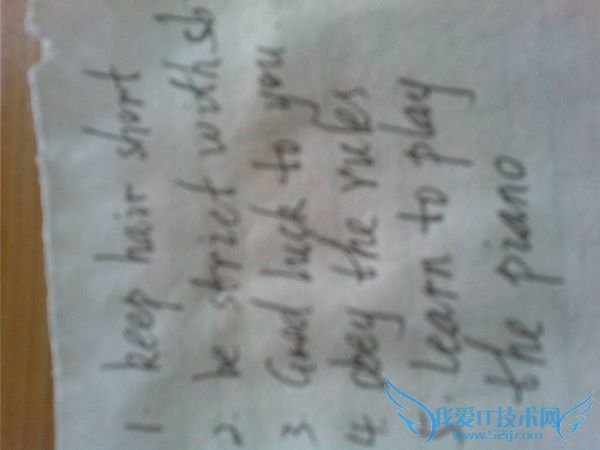 1. keep hair short
2. be strict with sb
3. Good luck to you
4. obey the rules
5. learn to play
the piano
我爱IT技术网
www.52ij.com